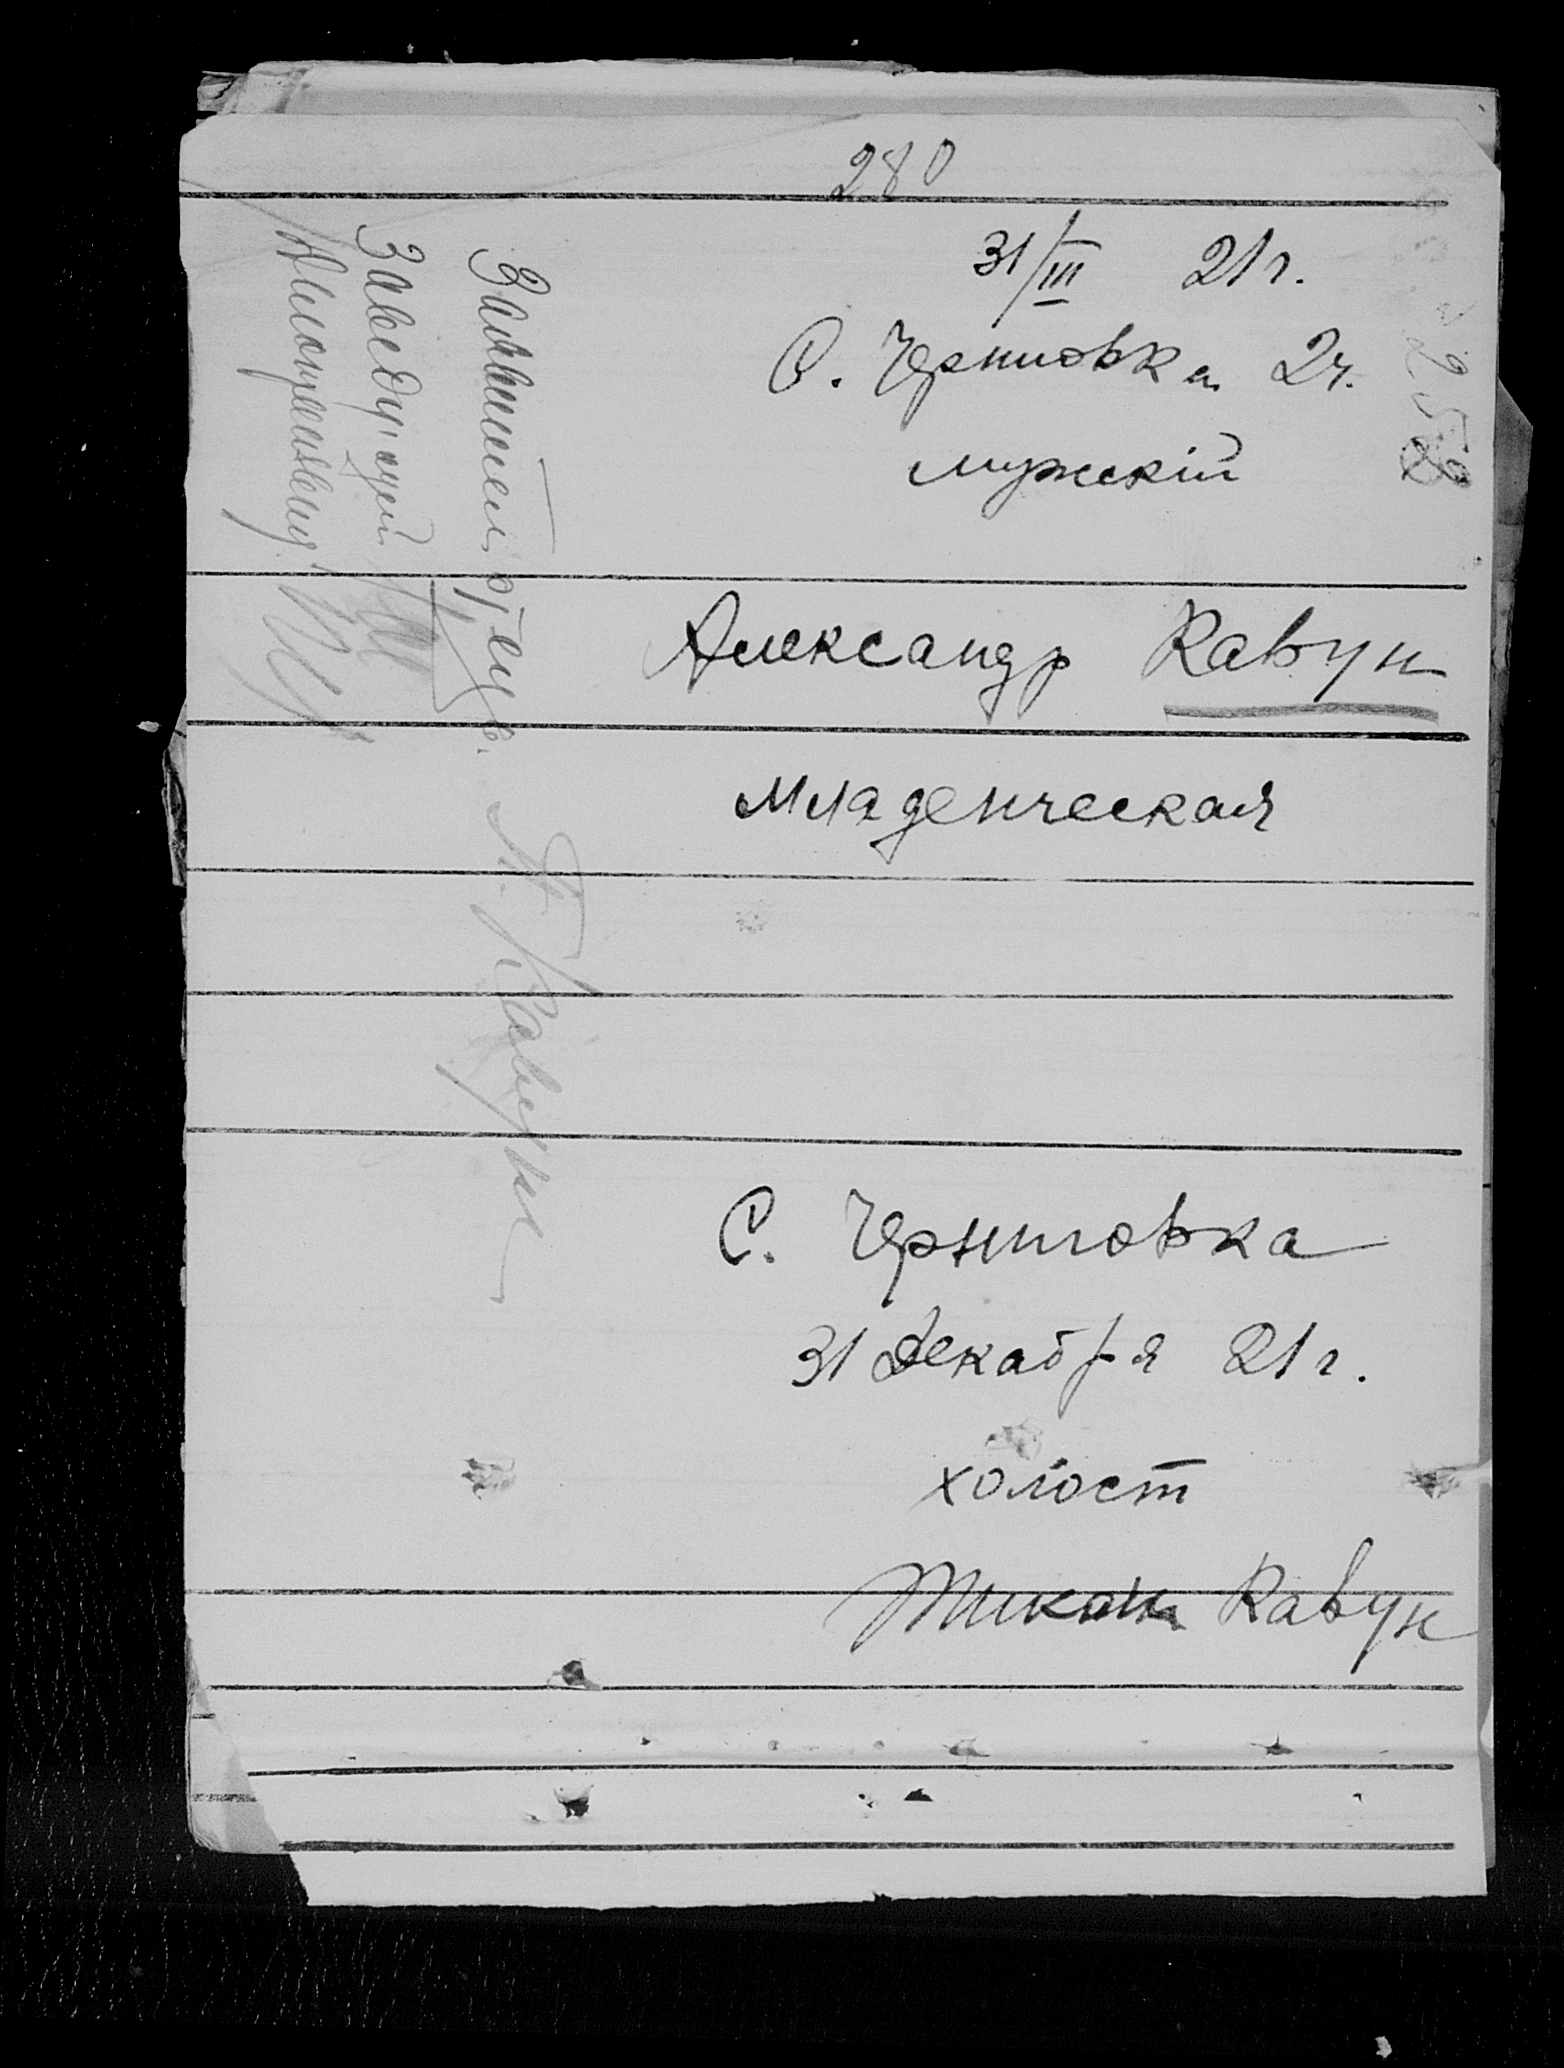 280
31/III 21 г.
С. Черниговка 2 ч.
258
мужскій
Александр Кавун
Младенческая
С. Черниговка
31 Декабря 21 г.
холост
Кавун
Заявитель отец. А. Кавун
Заведующий